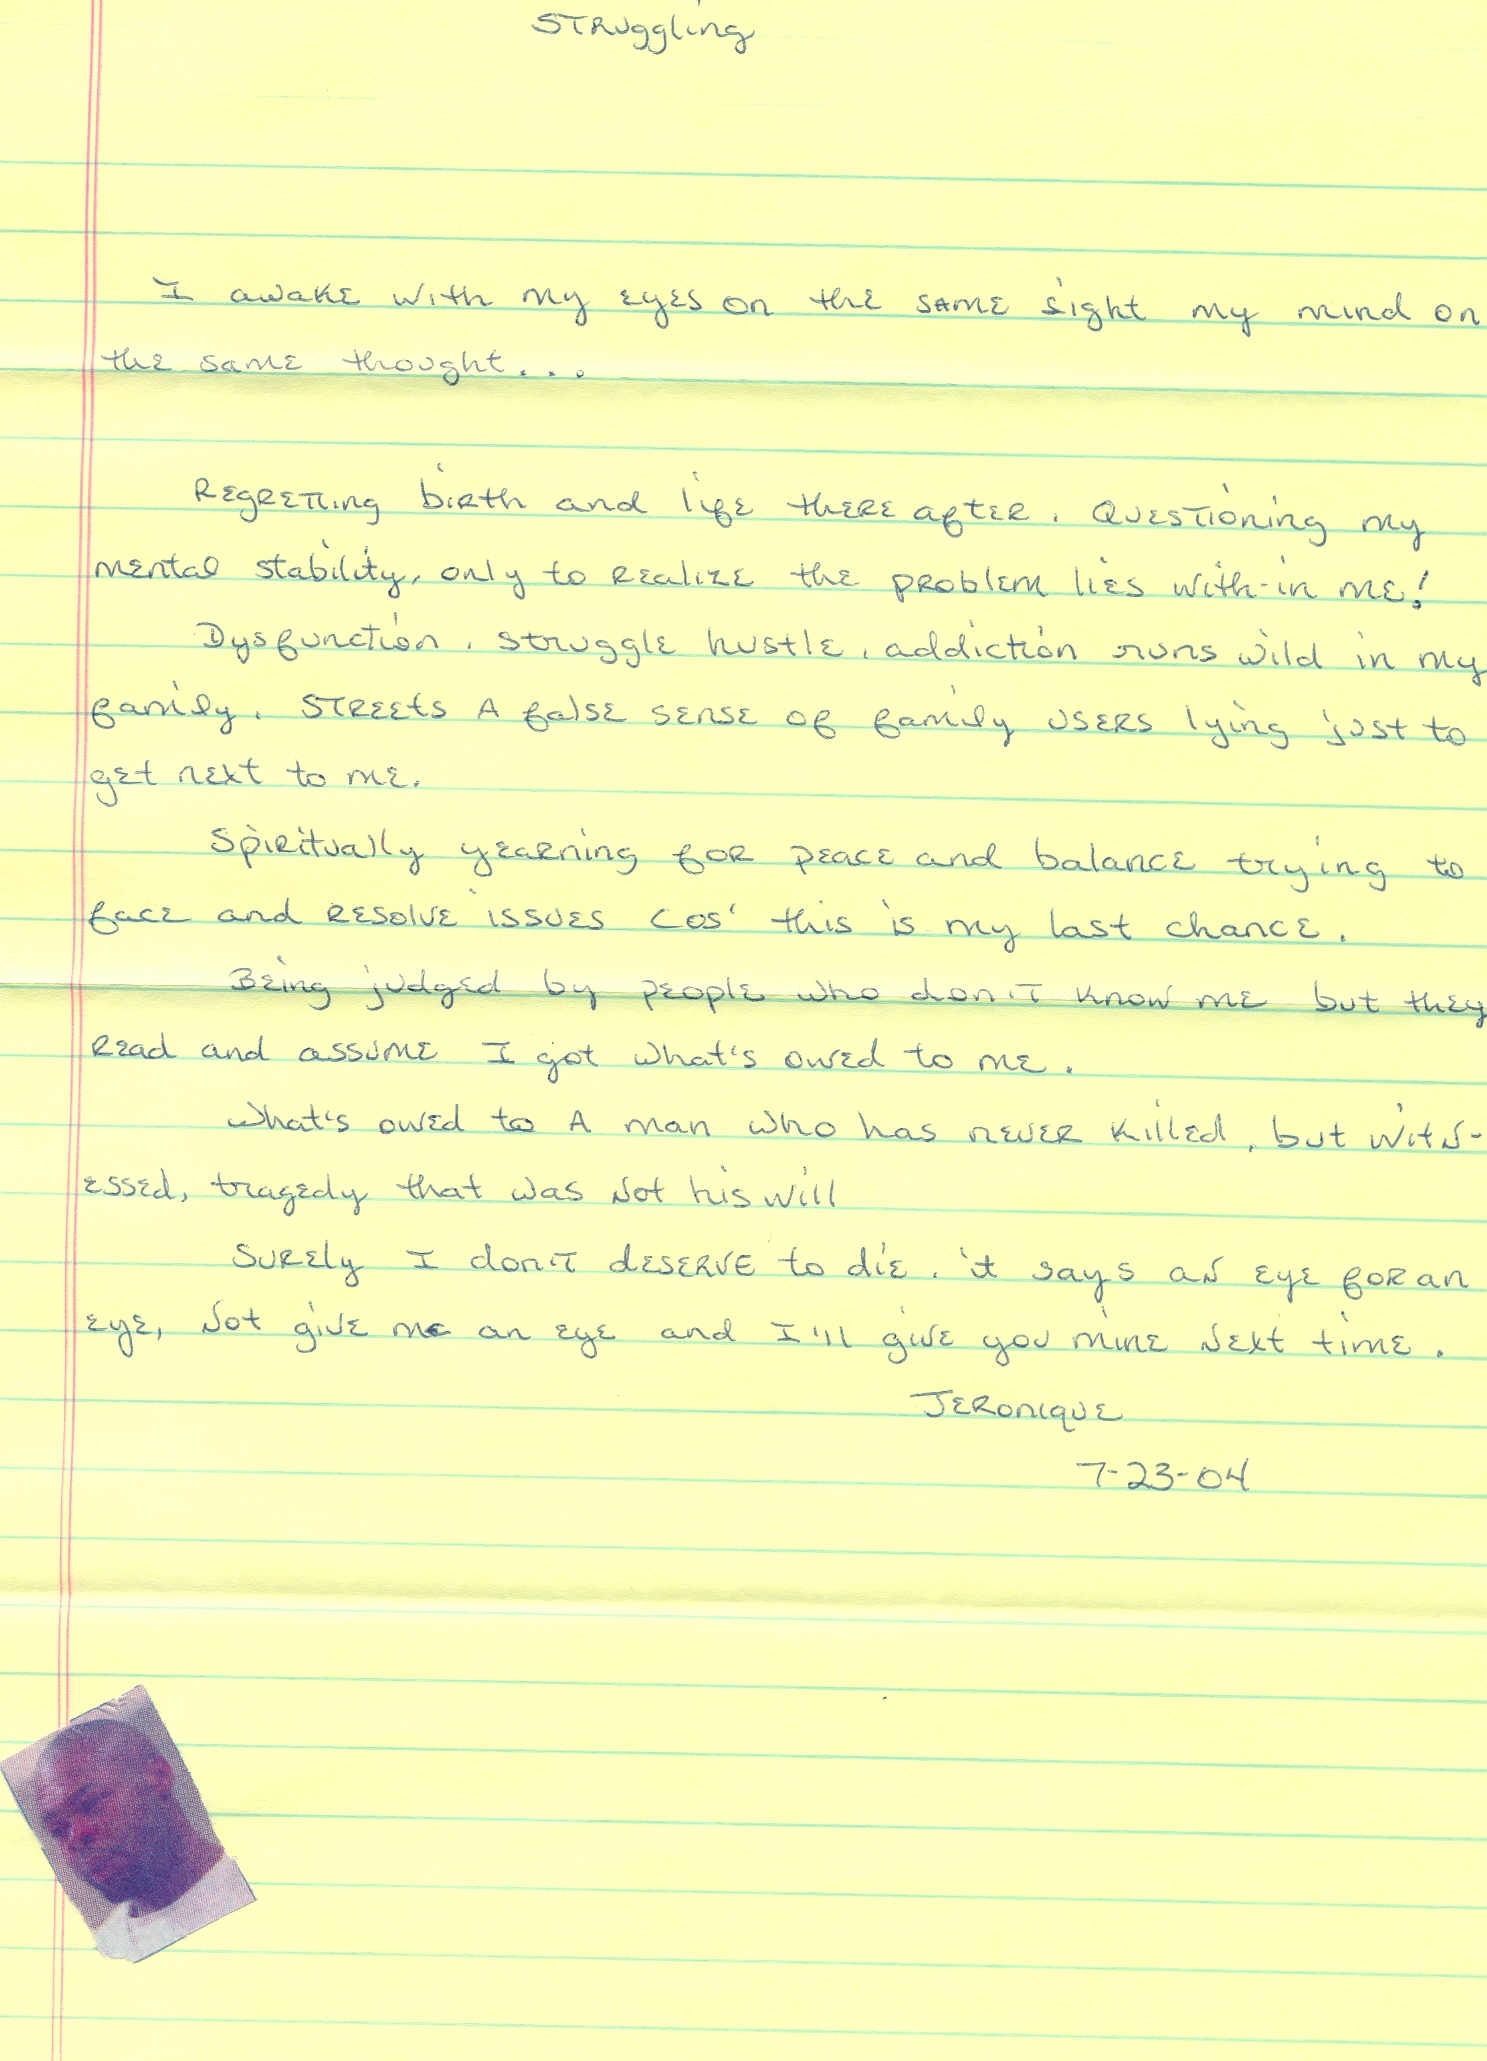 Struggling
I awake with my eyes on the same sight my mind on
the same thought...
Regretting birth and life there after. Questioning my
mental stability, only to realize the problem lies with-in me!
Dysfunction, struggle hustle, addiction runs wild in my
family. Streets A false sense of family users lying just to
get next to me.
Spiritually yearning for peace and balance trying to
face and resolve issues cos' this is my last chance.
Being judged by people who don't know me but they
read and assume I got what's owed to me.
What's owed to A man who has never killed, but witn-
essed, tragedy that was not his will
Surely I don't deserve to die. it says an eye for an
eye, Not give me an eye and I'll give you mine next time.
Jeronique
7-23-04